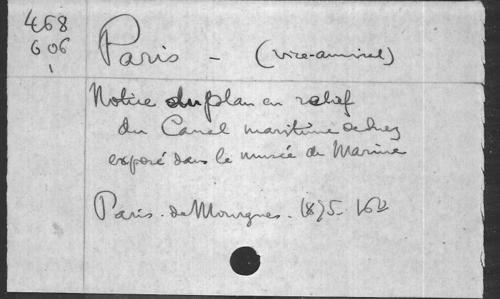 468
606
1
Paris - (vice-amiral)
Notice du plan en relief
du Canal maritime de Suez
exposé dans le musée de Marine
Paris. de Mourgues. 1875.